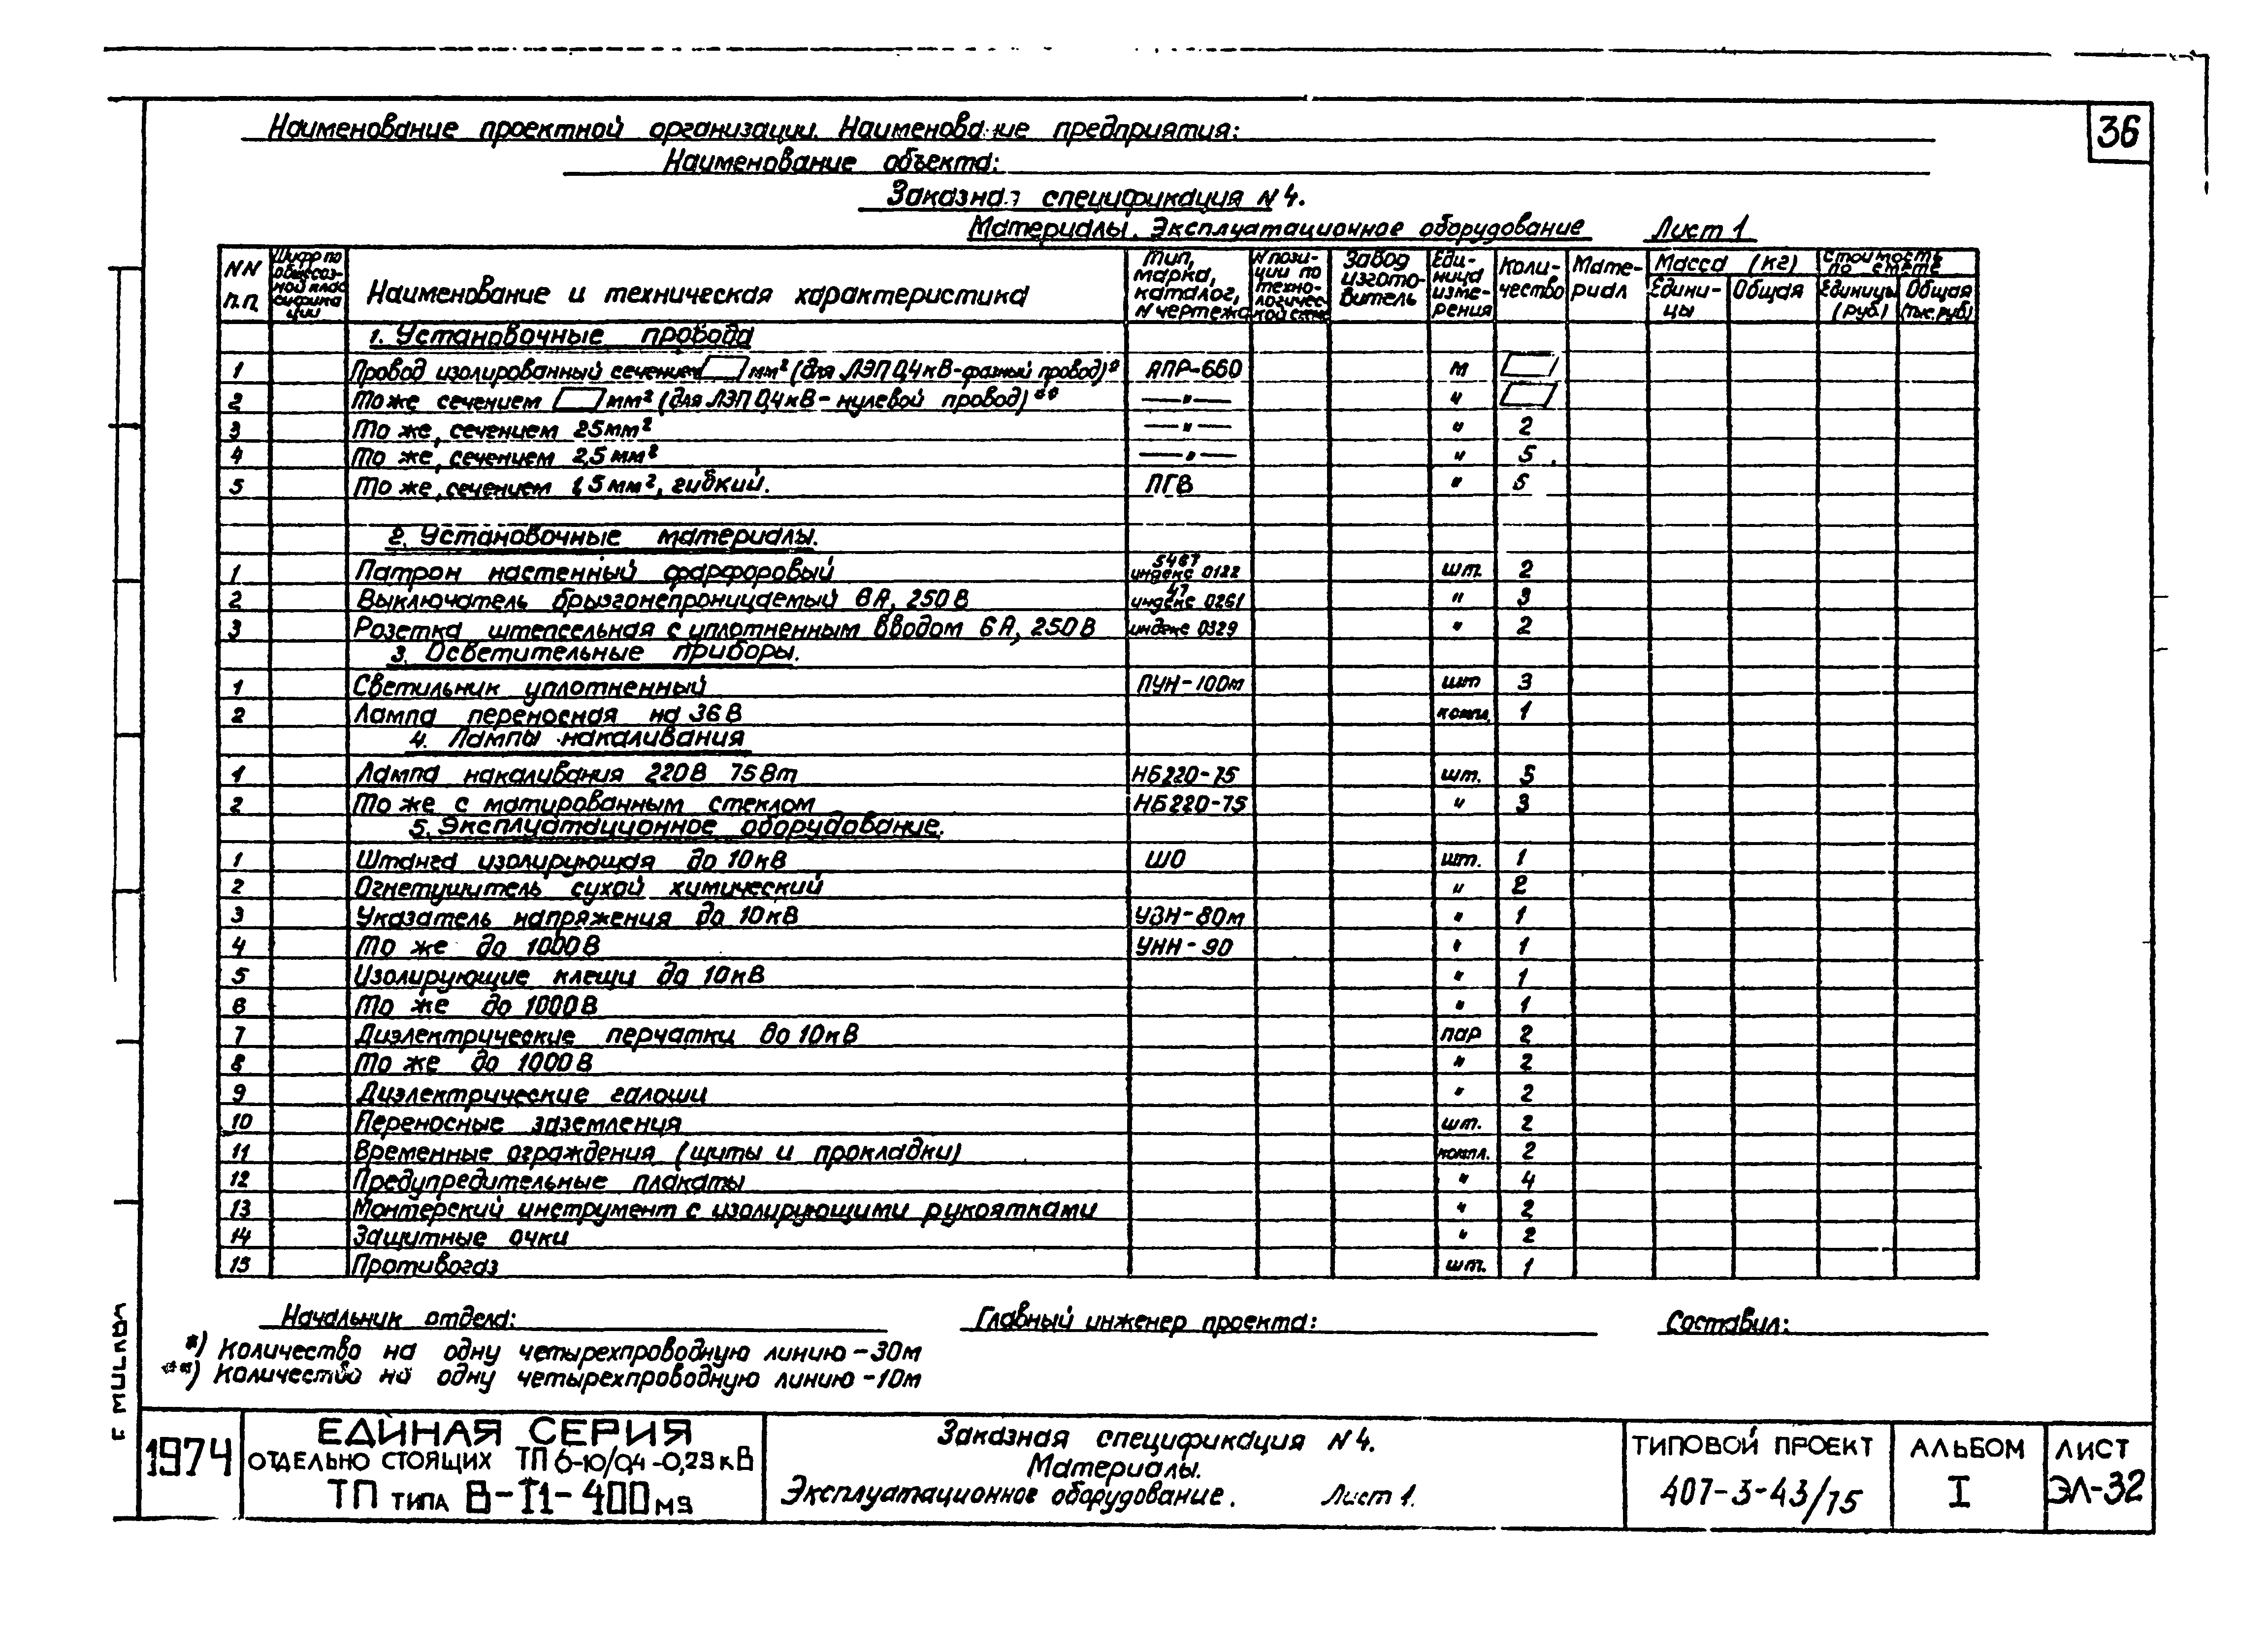 36
Наименование проектной организации. Наименование предприятия:
Наименование объекта:
Заказная спецификация N 4.
Материалы. Эксплуатационное оборудование Лист 1
NN п.п. | Шифр по общесоюзной классификации | Наименование и техническая характеристика | Тип, марка, каталог, N чертежа | N позиции по технологической схеме | Завод изготовитель | Единица измерения | Количество | Материал | Масса (кг) Единицы | Общая | Стоимость по смете Единицы (руб.) | Общая (тыс. руб.)
1. Установочные провода
1 Провод изолированный сечением мм² (для ЛЭП 0,4кВ-фазный провод)* АПР-660 м
2 То же сечением мм² (для ЛЭП 0,4кВ - нулевой провод)** —"— "
3 То же, сечением 25мм² —"— " 2
4 То же, сечением 2,5мм² —"— " 5
5 То же, сечением 1,5мм², гибкий. ПГВ " 5
2. Установочные материалы.
1 Патрон настенный фарфоровый 5467 индекс 0122 шт. 2
2 Выключатель брызгонепроницаемый 6А, 250В 47 индекс 0261 " 3
3 Розетка штепсельная с уплотненным вводом 6А, 250В индекс 0329 " 2
3. Осветительные приборы.
1 Светильник уплотненный ПУН-100м шт 3
2 Лампа переносная на 36В компл. 1
4. Лампы накаливания
1 Лампа накаливания 220В 75Вт НБ220-75 шт. 5
2 То же с матированным стеклом НБ220-75 " 3
5. Эксплуатационное оборудование.
1 Штанга изолирующая до 10кВ ШО шт. 1
2 Огнетушитель сухой химический " 2
3 Указатель напряжения до 10кВ УВН-80м " 1
4 То же до 1000В УНН-90 " 1
5 Изолирующие клещи до 10кВ " 1
6 То же до 1000В " 1
7 Диэлектрические перчатки до 10кВ пар 2
8 То же до 1000В " 2
9 Диэлектрические галоши " 2
10 Переносные заземления шт. 2
11 Временные ограждения (щиты и прокладки) компл. 2
12 Предупредительные плакаты " 4
13 Монтерский инструмент с изолирующими рукоятками " 2
14 Защитные очки " 2
15 Противогаз шт. 1
Начальник отдела: Главный инженер проекта: Составил:
*) Количество на одну четырехпроводную линию - 30м
**) Количество на одну четырехпроводную линию - 10м
1974
ЕДИНАЯ СЕРИЯ
ОТДЕЛЬНО СТОЯЩИХ ТП 6-10/0,4-0,23кВ
ТП ТИПА В-I1-400 м3
Заказная спецификация N 4.
Материалы.
Эксплуатационное оборудование. Лист 1.
ТИПОВОЙ ПРОЕКТ
407-3-43/75
АЛЬБОМ
I
ЛИСТ
ЭЛ-32